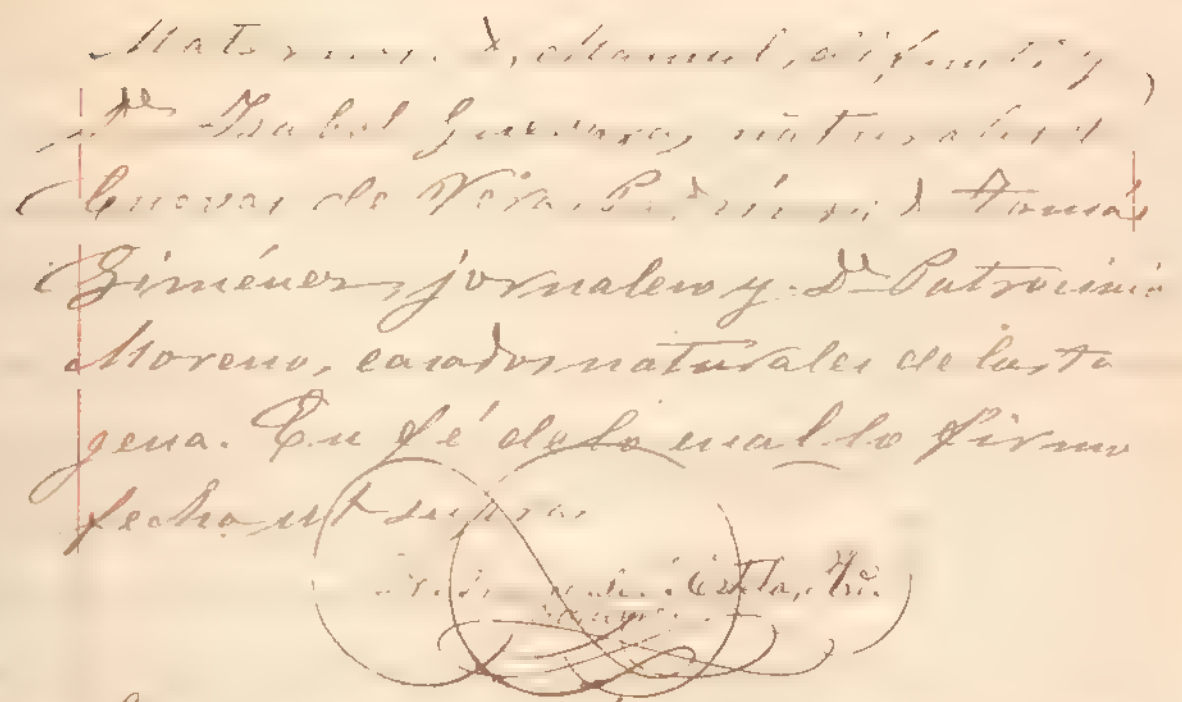 Maternos: D. Manuel, difunto y
Dª Isabel Guevara, naturales d
Cuevas de Vera. Padrinos: D. Tomás
Giménez, jornalero y Dª Patrocinio
Moreno, casados naturales de Carta
gena. En fé de lo cual lo firmo
fecha ut supra.